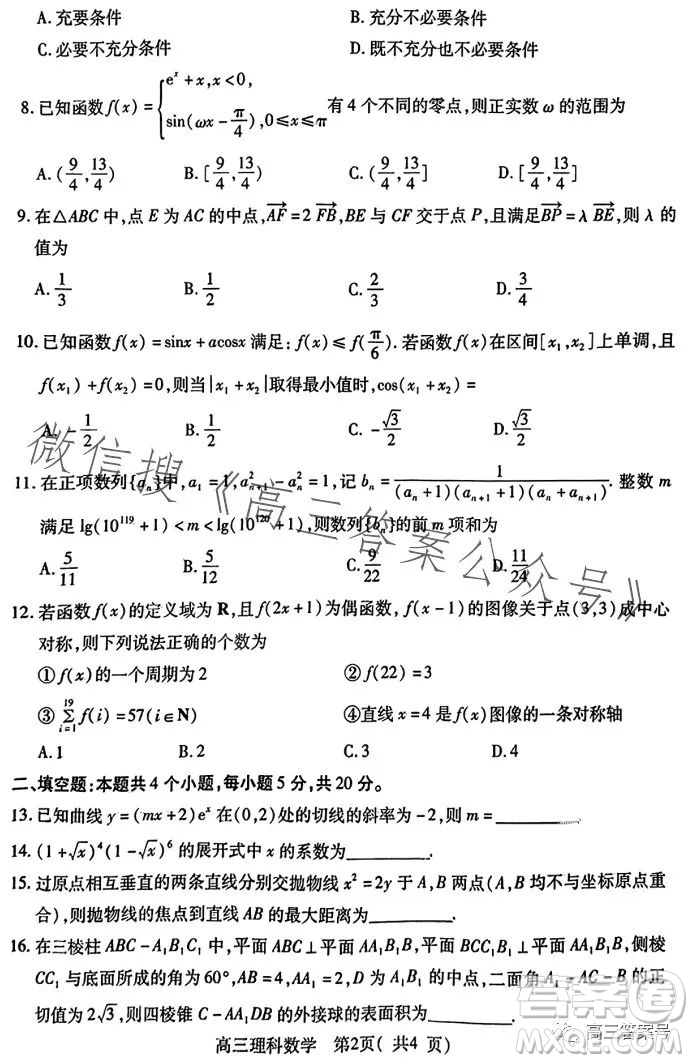 A.充要条件 B.充分不必要条件
C.必要不充分条件 D.既不充分也不必要条件
8.已知函数f(x)={e^x+x,x<0, sin(ωx-π/4),0≤x≤π 有4个不同的零点,则正实数ω的范围为
A.(9/4,13/4) B.[9/4,13/4) C.(9/4,13/4] D.[9/4,13/4]
9.在△ABC中,点E为AC的中点,AF→=2FB→,BE与CF交于点P,且满足BP→=λBE→,则λ的
值为
A.1/3 B.1/2 C.2/3 D.3/4
10.已知函数f(x)=sinx+acosx满足:f(x)≤f(π/6).若函数f(x)在区间[x₁,x₂]上单调,且
f(x₁)+f(x₂)=0,则当|x₁+x₂|取得最小值时,cos(x₁+x₂)=
A.-1/2 B.1/2 C.-√3/2 D.√3/2
11.在正项数列{aₙ}中,a₁=1,a²ₙ₊₁-a²ₙ=1,记bₙ=1/((aₙ+1)(aₙ₊₁+1)(aₙ+aₙ₊₁)).整数m
满足lg(10^119+1)<m<lg(10^120+1),则数列{bₙ}的前m项和为
A.5/11 B.5/12 C.9/22 D.11/24
12.若函数f(x)的定义域为R,且f(2x+1)为偶函数,f(x-1)的图像关于点(3,3)成中心
对称,则下列说法正确的个数为
①f(x)的一个周期为2 ②f(22)=3
③∑_{i=1}^{19}f(i)=57(i∈N) ④直线x=4是f(x)图像的一条对称轴
A.1 B.2 C.3 D.4
二、填空题:本题共4个小题,每小题5分,共20分。
13.已知曲线y=(mx+2)e^x在(0,2)处的切线的斜率为-2,则m=________
14.(1+√x)^4(1-√x)^6的展开式中x的系数为________.
15.过原点相互垂直的两条直线分别交抛物线x²=2y于A,B两点(A,B均不与坐标原点重
合),则抛物线的焦点到直线AB的最大距离为________.
16.在三棱柱ABC-A₁B₁C₁中,平面ABC⊥平面AA₁B₁B,平面BCC₁B₁⊥平面AA₁B₁B,侧棱
CC₁与底面所成的角为60°,AB=4,AA₁=2,D为A₁B₁的中点,二面角A₁-AC-B的正
切值为2√3,则四棱锥C-AA₁DB的外接球的表面积为________.
高三理科数学 第2页( 共4 页)
微信搜《高三答案公众号》
答案圈
高三答案号